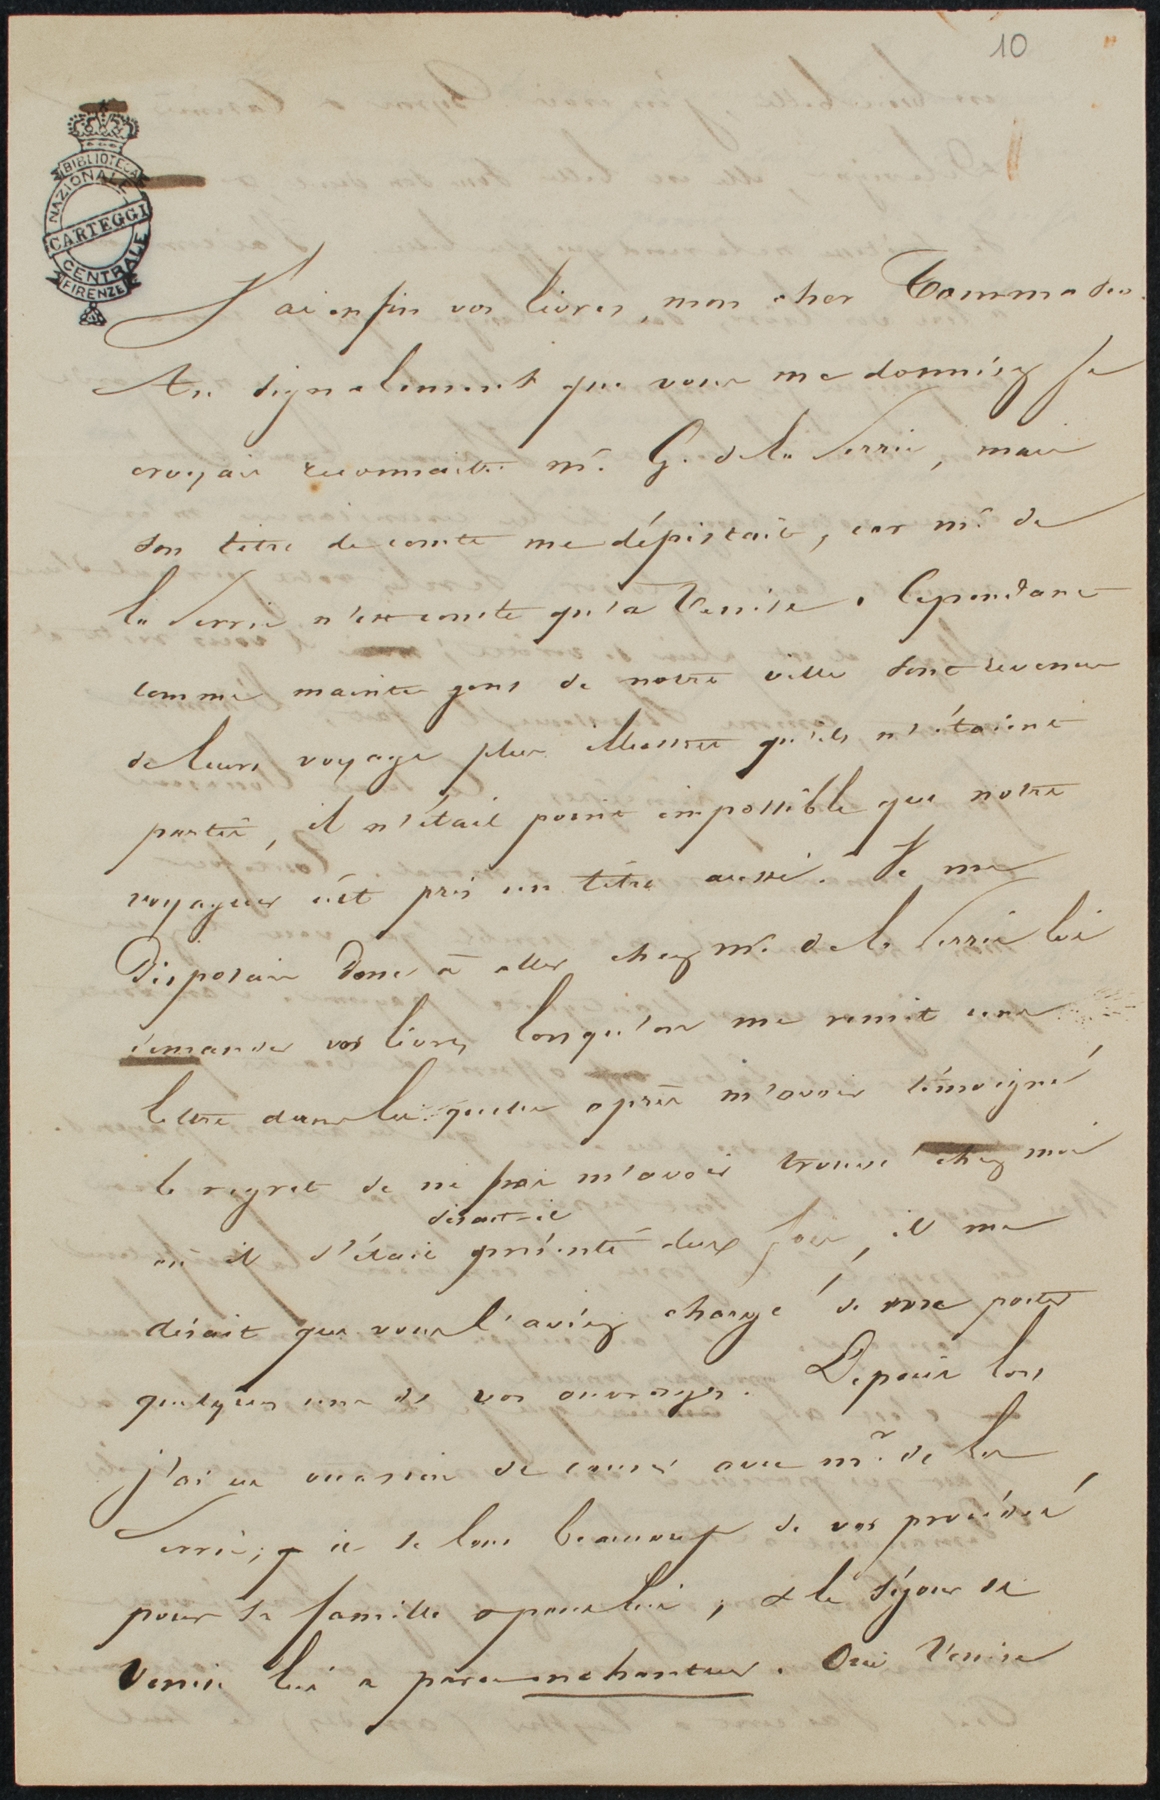 10
BIBLIOTECA
NAZIONALE
CARTEGGI
CENTRALE
FIRENZE
J'ai enfin vos livres, mon cher Tommaseo.
Au signalement que vous me donniez je
croyais reconnaitre mr. G. de la Serrie, mais
son titre de comte me dépistait, car mr. de
la Serrie n'est comte qu'a Venise. Cependant
comme maints gens de notre ville sont revenus
de leurs voyage plus illustres qu'ils n'étaient
partis, il n'était point impossible que notre
voyageur eût pris un titre aussi. Je me
disposais donc à aller chez mr. de la Serrie lui
demander vos livres, lorsqu'on me remit une
lettre dans laquelle après m'avoir témoigné
le regret de ne pas m'avoir trouvé chez moi
disait-il
où il s'était présenté deux fois, il me
disait que vous l'aviez chargé de me porter
quelques uns de vos ouvrages. Depuis lors
j'ai eu occasion de causer avec mr. de la
Serrie; il se loue beaucoup de vos procédés
pour sa famille & pour lui; & le séjour de
Venise lui a paru enchanteur. Oui Venise